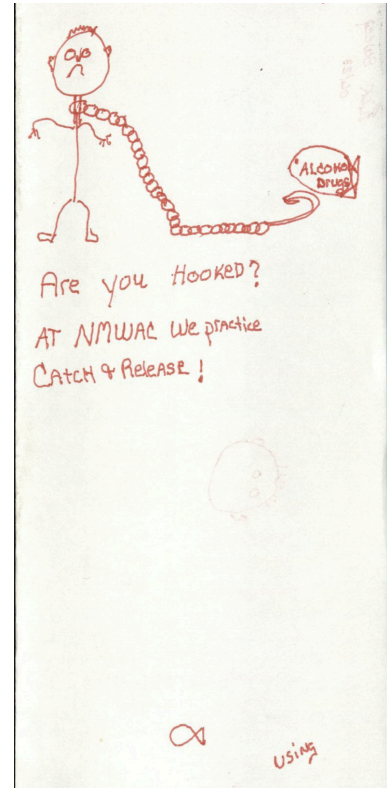 ALCOHOL
DRUGS
Are you HOOKED?
AT NMWAC We practice
CATCH & RELEASE!
using